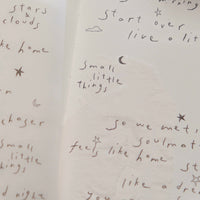 stars
&
clouds
ke home
chaser
small
little
things
d night
start over
live a lit
small
little
things
so we met i
soulmat
feels like home
st
like a dre
you